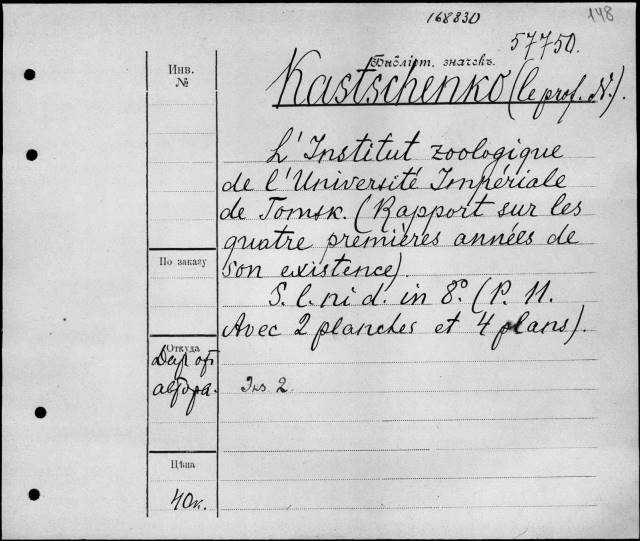 168830
148
57750.
Библіот. значекъ.
Kastschenko (le prof. N.).
L'Institut zoologique
de l'Université Impériale
de Tomsk. (Rapport sur les
quatre premières années de
son existence).
S. l. ni d. in 8º. (P. 11.
Avec 2 planches et 4 plans).
Инв.
№
По заказу
Откуда
Дар от
автора.
Экз 2
Цѣна
40к.